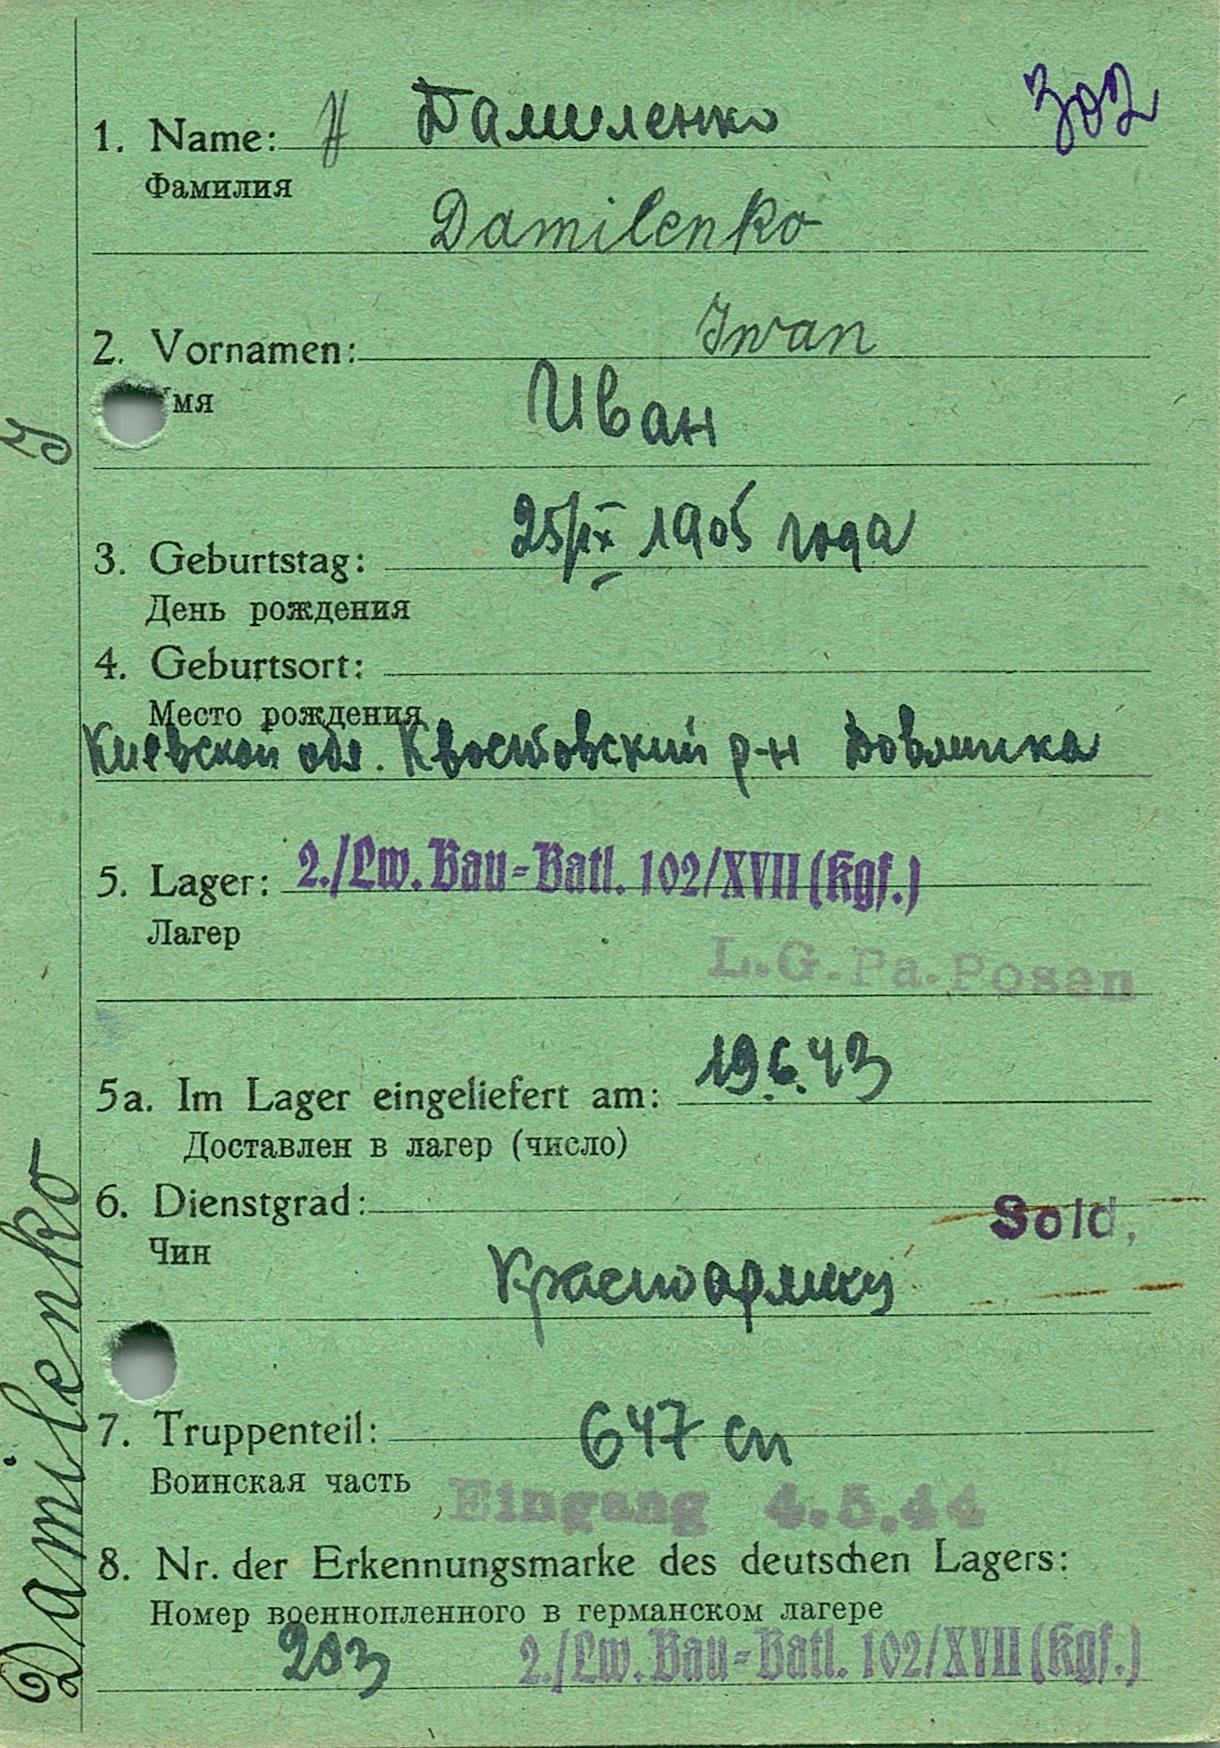 302
1. Name: Н Дамиленко
Фамилия
Damilenko
2. Vornamen: Iwan
мя
Иван
3. Geburtstag: 25/IX 1905 года
День рождения
4. Geburtsort:
Место рождения
Киевской обл. Квостовский р-н Довлинка
5. Lager: 2./Lw. Bau-Batl. 102/XVII (Kgf.)
Лагер
L.G.Pa. Posen
5a. Im Lager eingeliefert am: 19.6.43
Доставлен в лагер (число)
6. Dienstgrad: Sold,
Чин
Красноармиец
7. Truppenteil: 647 сп
Воинская часть
Eingang 4.5.44
8. Nr. der Erkennungsmarke des deutschen Lagers:
Номер военнопленного в германском лагере
203 2./Lw. Bau-Batl. 102/XVII (Kgf.)
Damilenko J